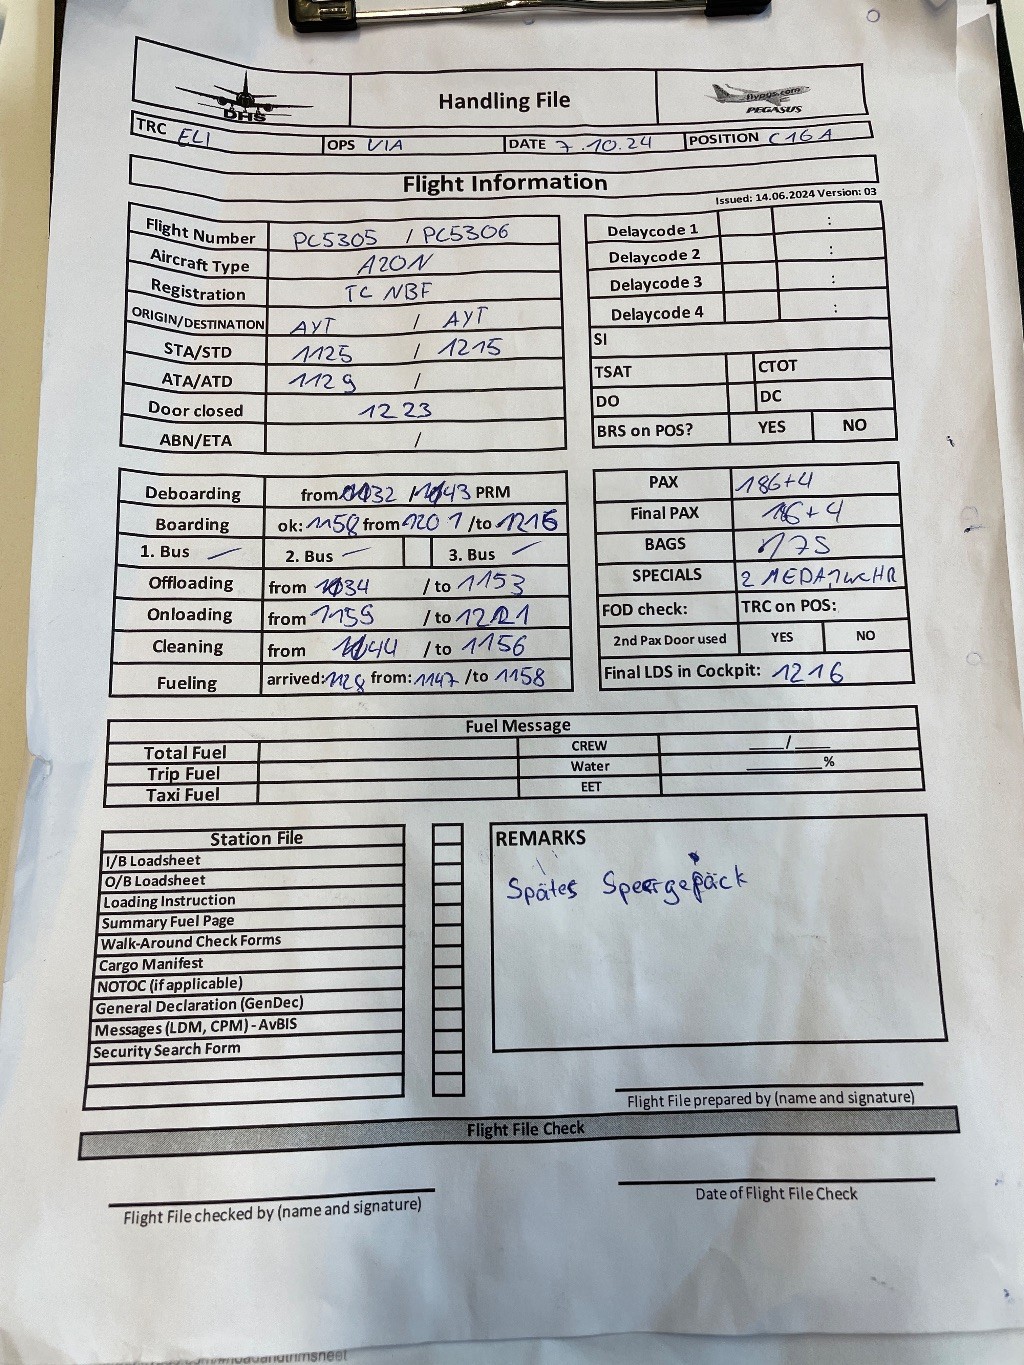 DHS
Handling File
flypgs.com
PEGASUS
TRC ELI OPS VIA DATE 7.10.24 POSITION C16A
Flight Information
Issued: 14.06.2024 Version: 03
Flight Number PC5305 / PC5306
Aircraft Type A20N
Registration TC NBF
ORIGIN/DESTINATION AYT / AYT
STA/STD 1125 / 1215
ATA/ATD 1129 /
Door closed 1223
ABN/ETA /
Delaycode 1 :
Delaycode 2 :
Delaycode 3 :
Delaycode 4 :
SI
TSAT CTOT
DO DC
BRS on POS? YES NO
Deboarding from 1132 / 1143 PRM
Boarding ok: 1158 from 1201 /to 1216
1. Bus 2. Bus 3. Bus
Offloading from 1134 / to 1153
Onloading from 1159 / to 1221
Cleaning from 1144 / to 1156
Fueling arrived: 1128 from: 1147 /to 1158
PAX 186+4
Final PAX +4
BAGS 175
SPECIALS 2 MEDA, 1WCHR
FOD check: TRC on POS:
2nd Pax Door used YES NO
Final LDS in Cockpit: 1216
Fuel Message
Total Fuel CREW ___/___
Trip Fuel Water ______%
Taxi Fuel EET
Station File
I/B Loadsheet
O/B Loadsheet
Loading Instruction
Summary Fuel Page
Walk-Around Check Forms
Cargo Manifest
NOTOC (if applicable)
General Declaration (GenDec)
Messages (LDM, CPM) - AvBIS
Security Search Form
REMARKS
Spätes Speergepäck
Flight File prepared by (name and signature)
Flight File Check
Flight File checked by (name and signature)
Date of Flight File Check